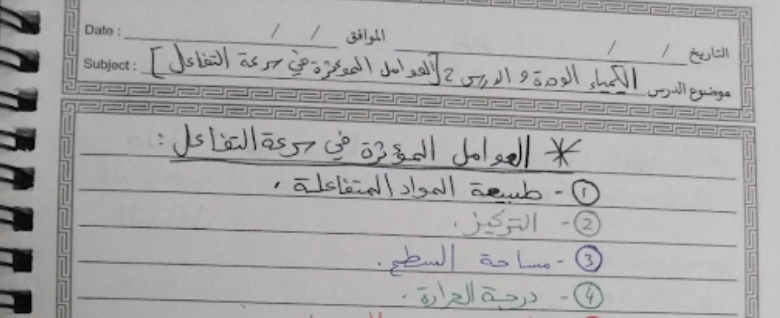 التاريخ / / الموافق / / Date :
موضوع الدرس الكيمياء الوحدة و الدرس 2 [العوامل المؤثرة في سرعة التفاعل] Subject :
* العوامل المؤثرة في سرعة التفاعل :
①- طبيعة المواد المتفاعلة .
②- التركيز .
③- مساحة السطح .
④- درجة الحرارة .